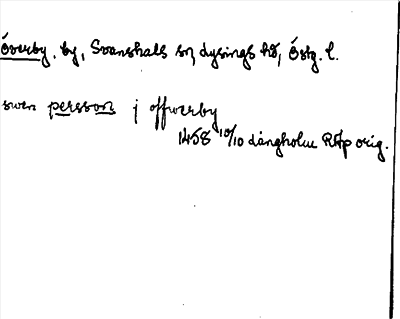 Överby. by, Svanshals sn, dysings hd, Östg. l.
swen persson j offwerby
1458 10/10 dångholm RAp orig.